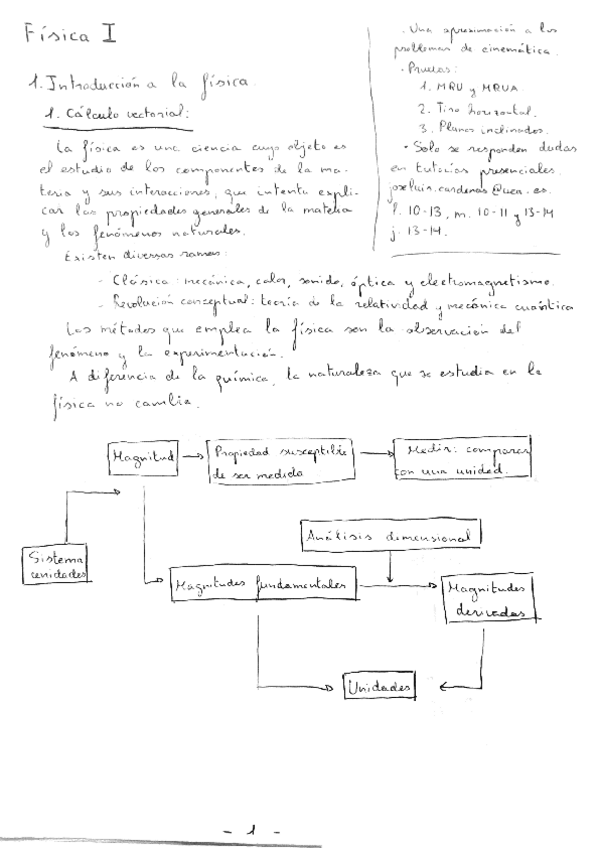 Física I
1. Introducción a la física.
1. Cálculo vectorial:
La física es una ciencia cuyo objeto es
el estudio de los componentes de la ma-
teria y sus interacciones, que intenta expli-
car las propiedades generales de la materia
y los fenómenos naturales.
Existen diversas ramas:
- Clásica: mecánica, calor, sonido, óptica y electromagnetismo.
- Revolución conceptual: teoría de la relatividad y mecánica cuántica
Los métodos que emplea la física son la observación del
fenómeno y la experimentación.
A diferencia de la química, la naturaleza que se estudia en la
física no cambia.
· Una aproximación a los
problemas de cinemática.
· Pruebas:
1. MRU y MRUA.
2. Tiro horizontal.
3. Planos inclinados.
· Solo se responden dudas
en tutorías presenciales.
joseluis.cardenas@uen.es.
l. 10-13, m. 10-11 y 13-14
j. 13-14.
Magnitud
Propiedad susceptible
de ser medida
Medir: comparar
con una unidad.
Análisis dimensional
Sistema
unidades
Magnitudes fundamentales
Magnitudes
derivadas
Unidades
- 1 -